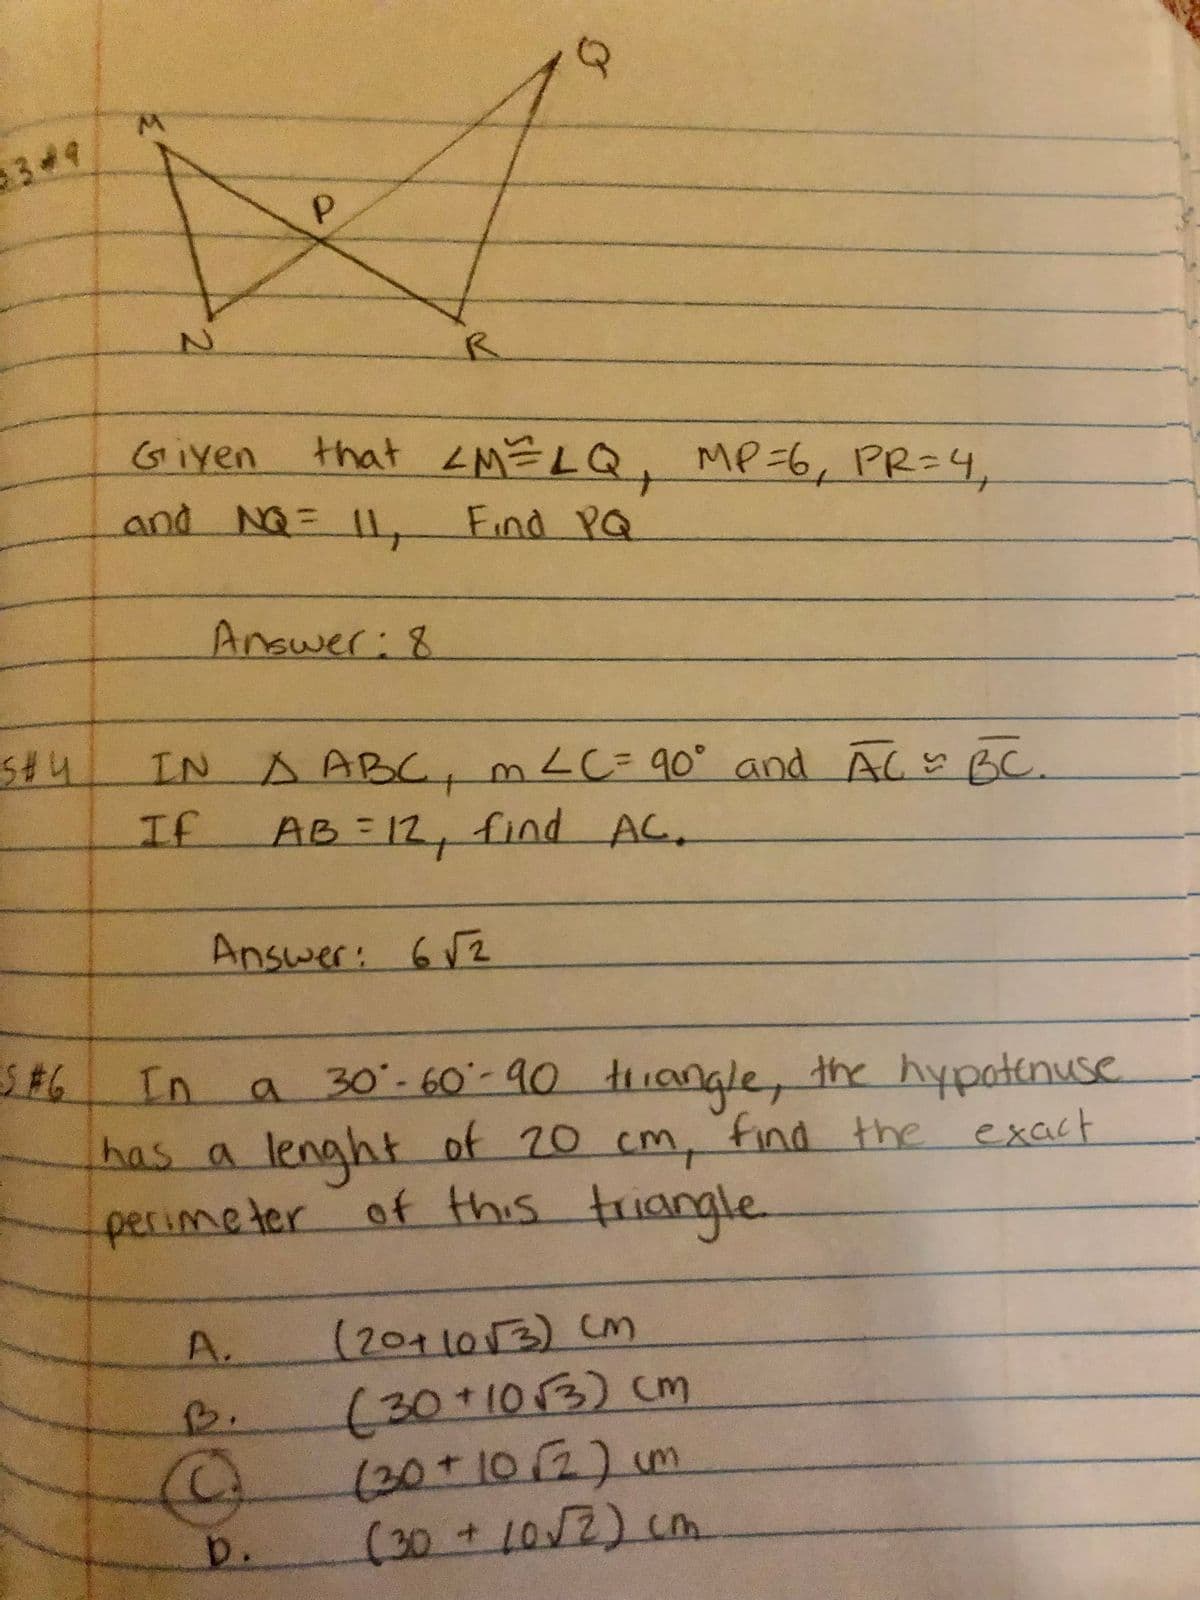 Q
M
3#9
P
N
R
Given that ∠M≅∠Q, MP=6, PR=4,
and NQ= 11, Find PQ
Answer: 8
5#4 IN Δ ABC, m∠C= 90° and AC ≅ BC.
If AB =12, find AC.
Answer: 6√2
5#6 In a 30°-60°-90 triangle, the hypotenuse
has a lenght of 20 cm, find the exact
perimeter of this triangle.
A. (20+10√3) cm
B. (30+10√3) cm
C. (30+10√2) cm
D. (30 + 10√2) cm